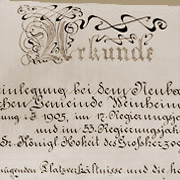 Urkunde
inlegung bei dem Neuba
chen Gemeinde Weinheim
ung i. J. 1905, im 12. Regierungsja
und im 53. Regierungsjah
Sr. Königl. Hoheit des Großherzog
ügenden Platzverhältnisse und die he